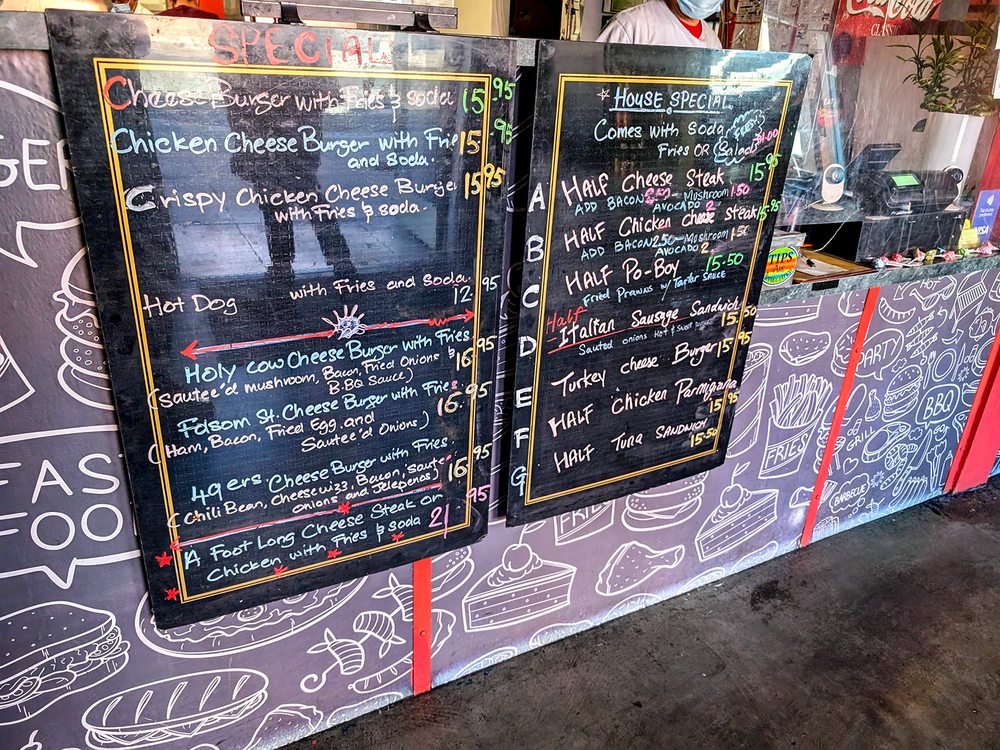 SPECIAL
Cheese Burger with Fries & soda 15.95
Chicken Cheese Burger with Frie 15.95
and soda.
Crispy Chicken Cheese Burger 15.95
with Fries & soda
Hot Dog with Fries and Soda
12.95
Holy cow Cheese Burger with Fries
(Sautee'd mushroom, Bacon, Fried Onions & 16.95
B.B.Q Sauce)
Folsom St. Cheese Burger with Fries
(Ham, Bacon, Fried Egg, and 16.95
Sautee'd Onions)
49ers Cheese Burger with Fries
(Chili Bean, Cheesewizz, Bacon, Sautee 16.95
onions and Jelepenos)
A Foot Long Cheese Steak or
Chicken with Fries & soda 21.95
HOUSE SPECIAL
Comes with Soda
Fries OR Salad $1.00
A HALF Cheese Steak 15.95
ADD BACON 2.50 Mushroom 1.50
AVOCADO 2
B HALF Chicken cheese steak 15.95
ADD BACON 2.50 Mushroom 1.50
AVOCADO 2
C HALF PO-BOY 15.50
Fried Prawns w/ Tartar SAUCE
D Half Italian Sausage Sandwich 15.50
Sauted onions Hot & Sweet
E Turkey cheese Burger 15.95
F HALF Chicken Parmigiana
15.95
G HALF Tuna SANDWICH 15.50
Coca-Cola
CLASSIC
EAT
TIPS
VISA
GER
FAS
FOO
FRIES
FRIES
PARTY
BBQ
GRILL
BARBECUE